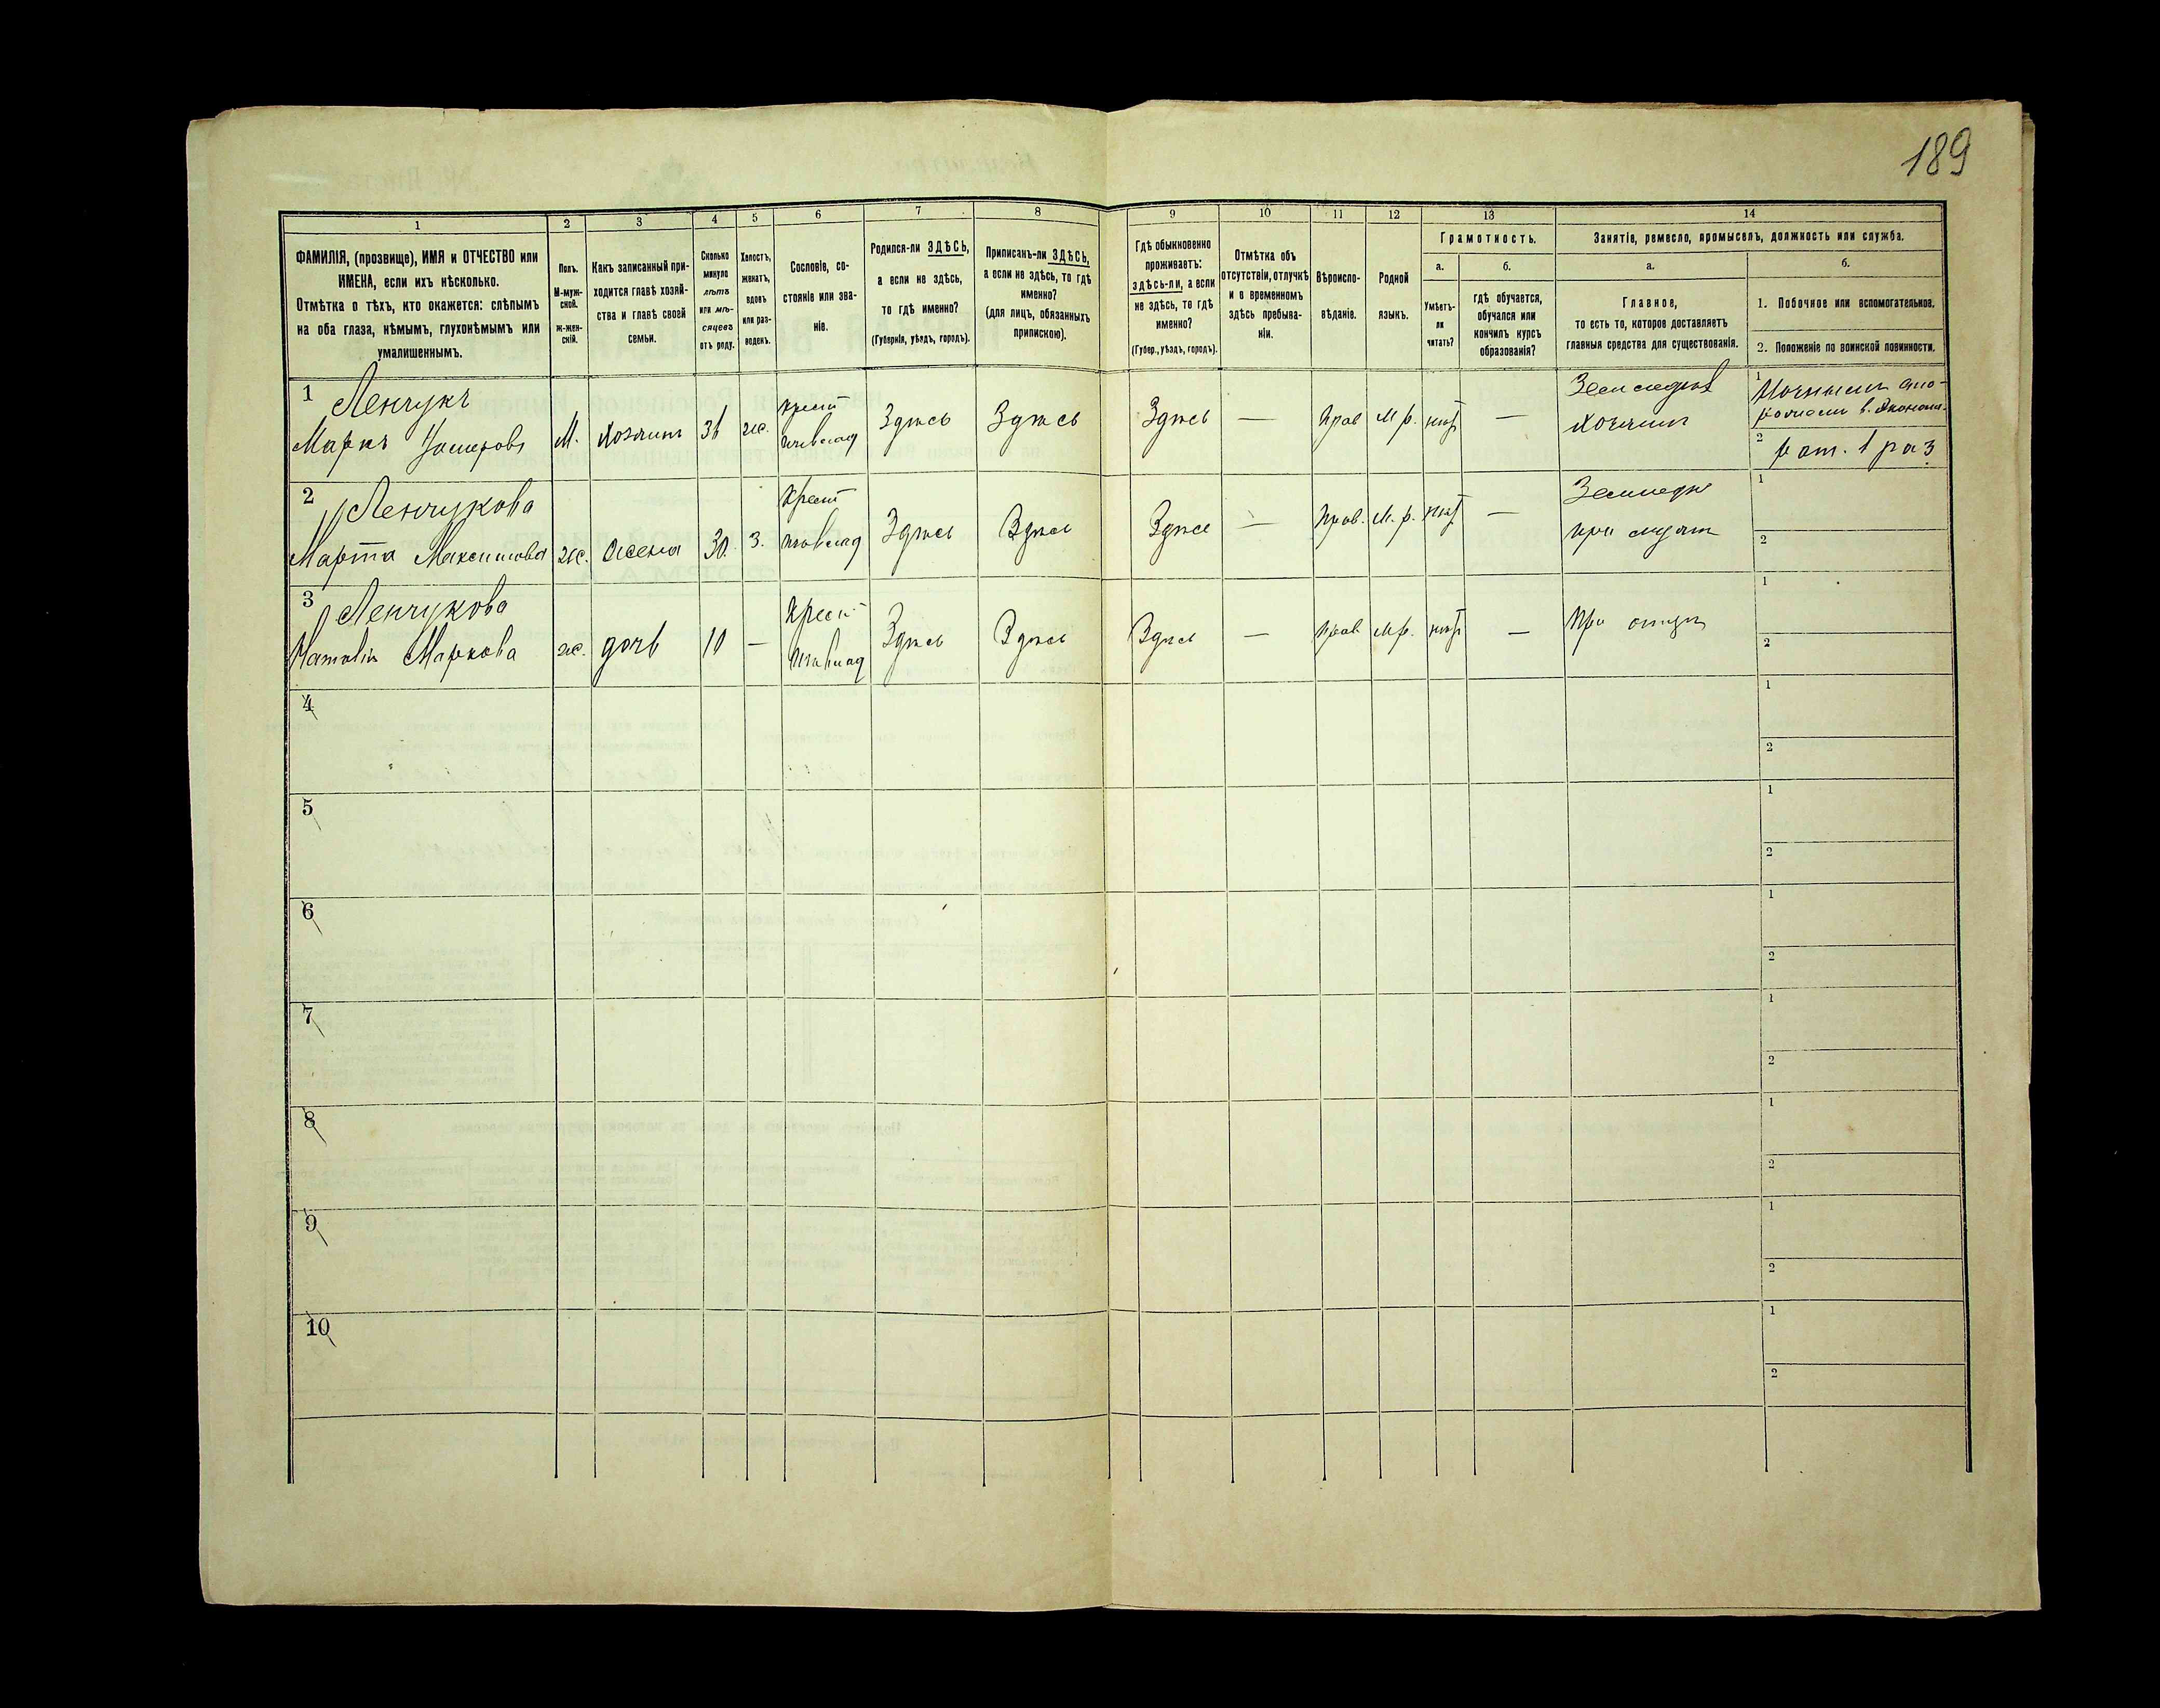 189
1
2
3
4
5
6
7
8
9
10
11
12
13
14
ФАМИЛІЯ, (прозвище), ИМЯ и ОТЧЕСТВО или
ИМЕНА, если ихъ нѣсколько.
Отмѣтка о тѣхъ, кто окажется: слѣпымъ
на оба глаза, нѣмымъ, глухонѣмымъ или
умалишеннымъ.
Полъ.
М-муж-
ской.
ж-жен-
скій.
Какъ записанный при-
ходится главѣ хозяй-
ства и главѣ своей
семьи.
Сколько
минуло
лѣтъ
или мѣ-
сяцевъ
отъ роду.
Холостъ,
женатъ,
вдовъ
или раз-
веденъ.
Сословіе, со-
стояніе или зва-
ніе.
Родился-ли ЗДѢСЬ,
а если не здѣсь,
то гдѣ именно?
(Губернія, уѣздъ, городъ).
Приписанъ-ли ЗДѢСЬ,
а если не здѣсь, то гдѣ
именно?
(для лицъ, обязанныхъ
припискою).
Гдѣ обыкновенно
проживаетъ:
здѣсь-ли, а если
не здѣсь, то гдѣ
именно?
(Губер., уѣздъ, городъ).
Отмѣтка объ
отсутствіи, отлучкѣ
и о временномъ
здѣсь пребыва-
ніи.
Вѣроиспо-
вѣданіе.
Родной
языкъ.
Грамотность.
а.
Умѣетъ-
ли
читать?
б.
гдѣ обучается,
обучался или
кончилъ курсъ
образованія?
Занятіе, ремесло, промыселъ, должность или служба.
а.
Главное,
то есть то, которое доставляетъ
главныя средства для существованія.
б.
1. Побочное или вспомогательное.
2. Положеніе по воинской повинности.
1
Ленчукъ
Маркъ
М.
Хозяинъ
36
ж.
Крест
Здѣсь
Здѣсь
Здѣсь
—
Прав
М р.
нѣт
—
Хозяинъ
1
2
рат. 1 раз
2
Ленчукова
Марта Максимова
ж.
Жена
30.
З.
Крест
Здѣсь
Здѣсь
Здѣсе
—
Прав.
М. р.
нѣт
—
при
1
2
3
Ленчукова
Наталія Маркова
ж.
дочь
10
—
Крест
Здѣсь
Здѣсь
Здѣсь
—
Прав
М р.
нѣт
—
При отцѣ
1
2
4
1
2
5
1
2
6
1
2
7
1
2
8
1
2
9
1
2
10
1
2